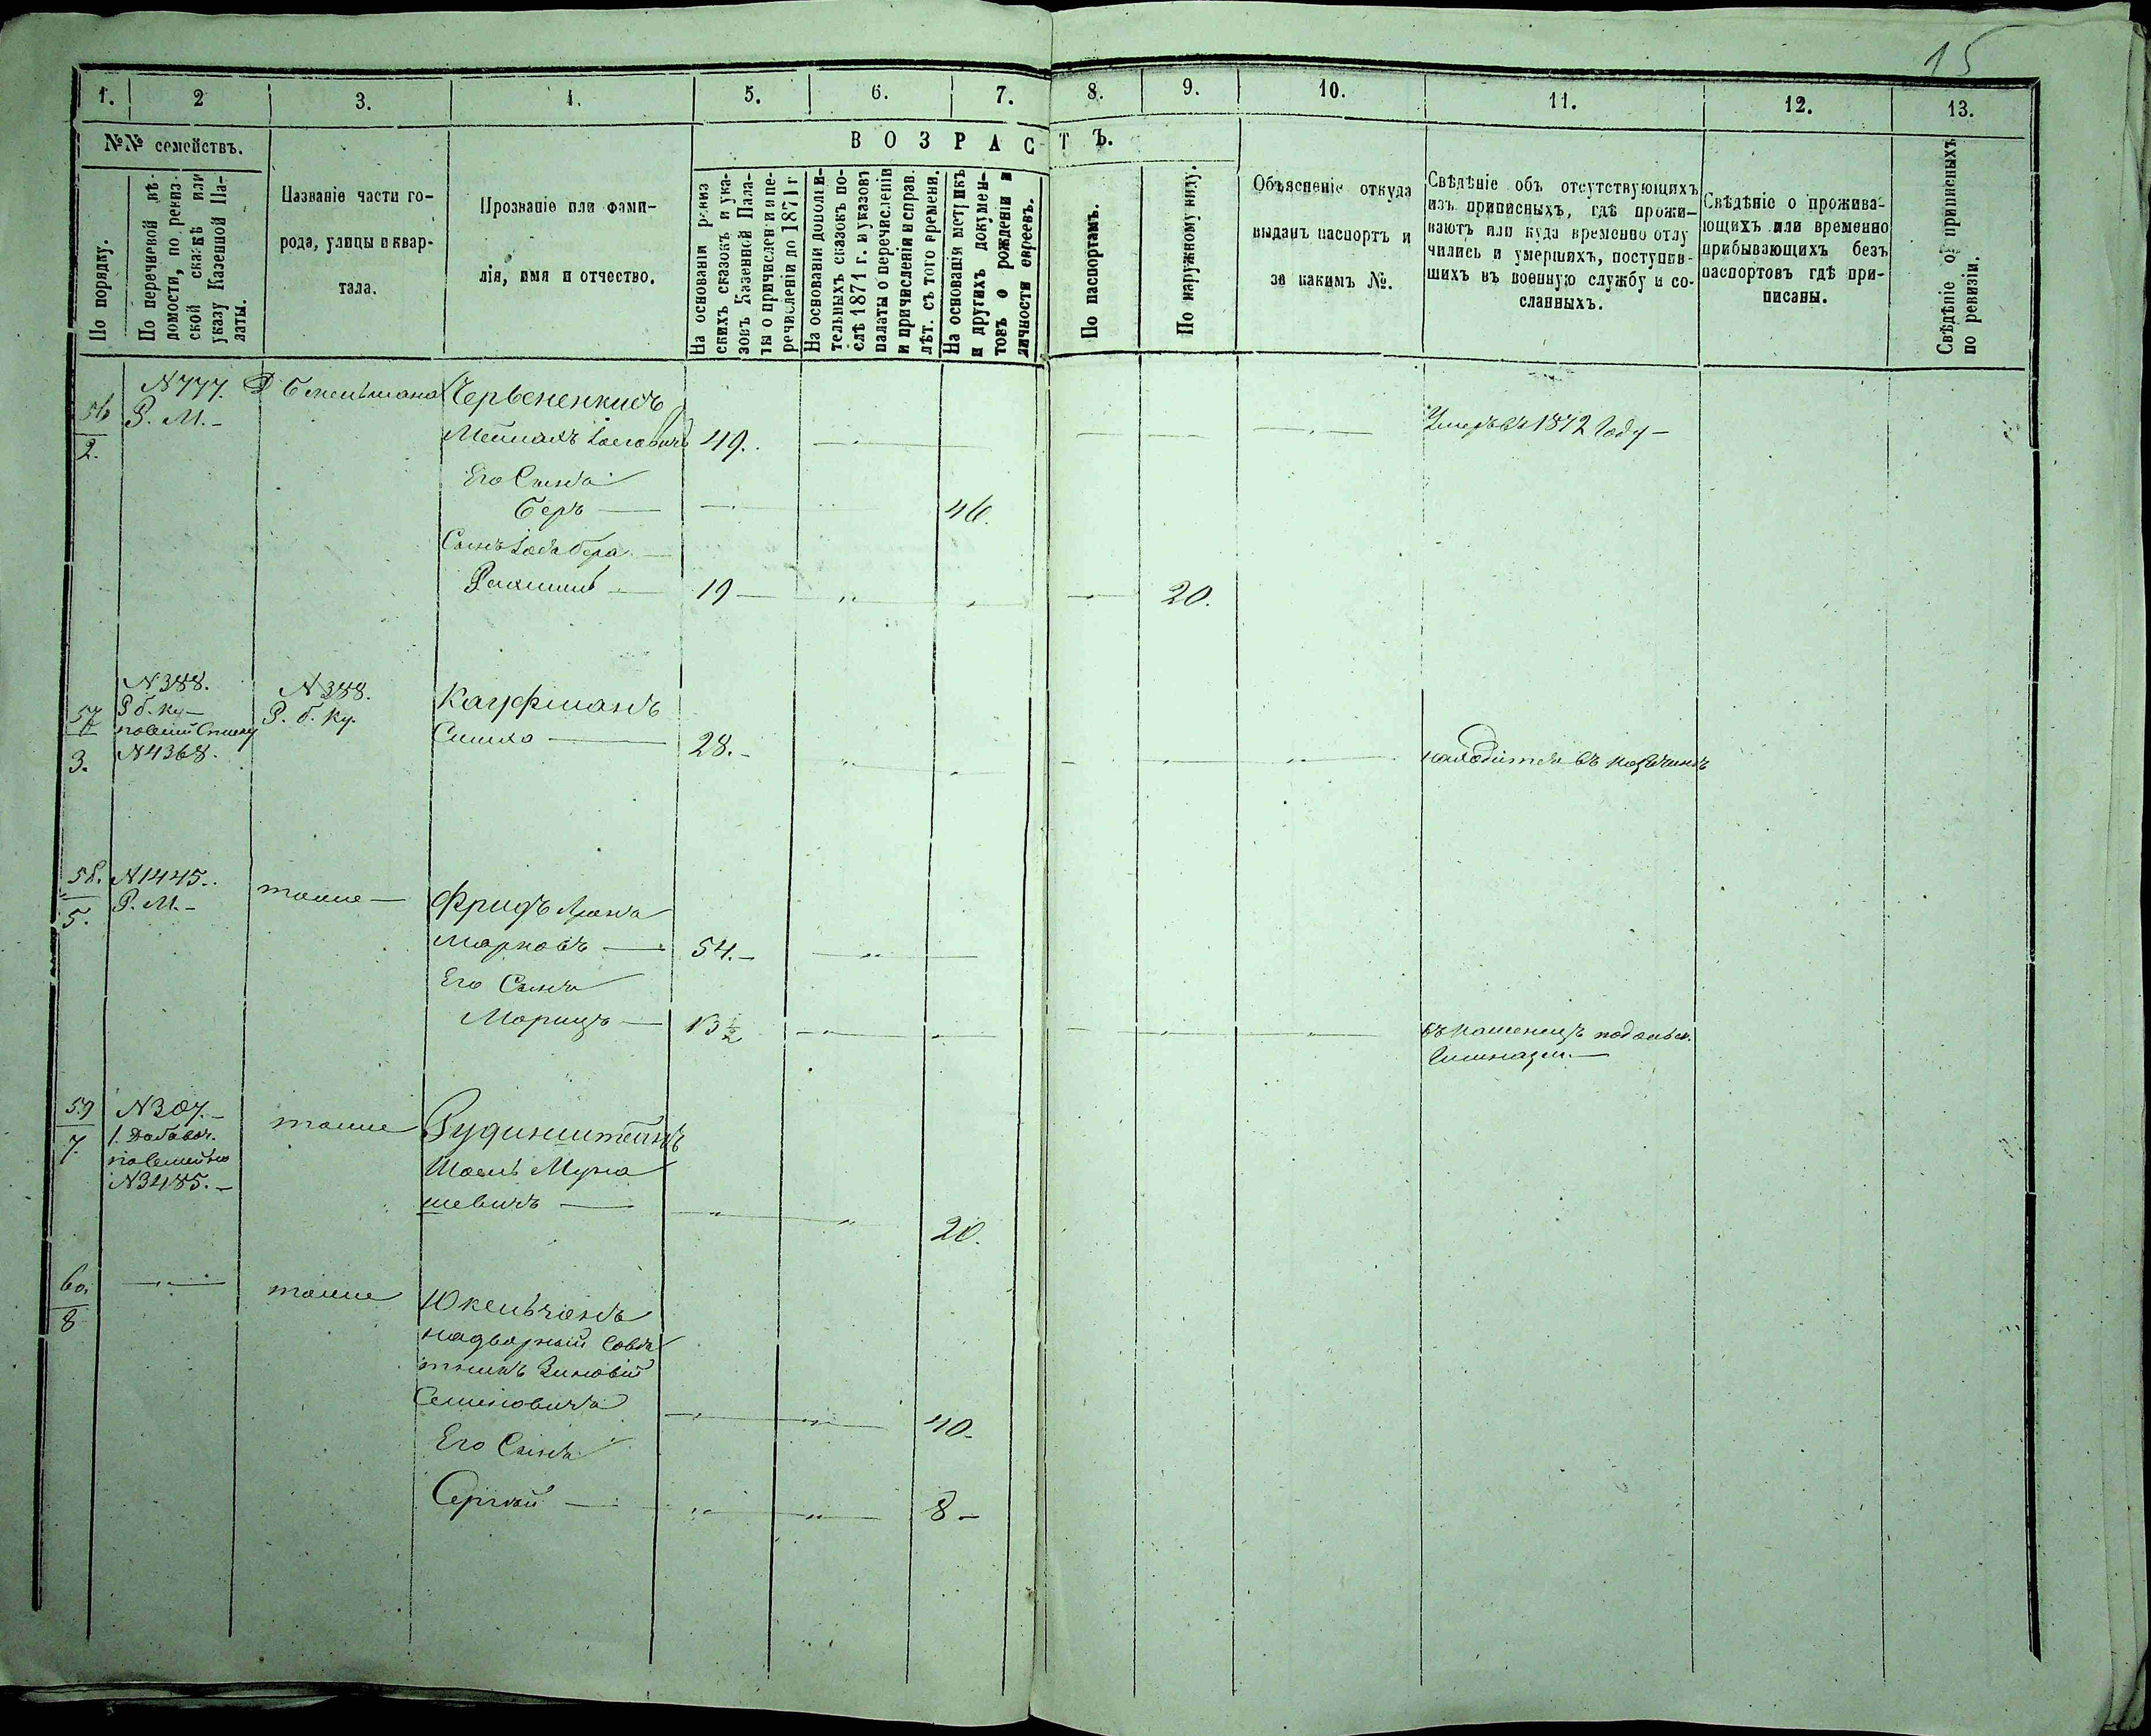 15
1. 2 3. 4. 5. 6. 7. 8. 9. 10. 11. 12. 13.
№№ семействъ.
ВОЗРАСТЪ.
По порядку.
По перечневой вѣ-
домости, по ревиз-
ской сказкѣ или
указу Казенной Па-
латы.
Названіе части го-
рода, улицы и квар-
тала.
Прозваніе или фами-
лія, имя и отчество.
На основаніи ревиз
скихъ сказокъ и ука-
зовъ Казенной Пала-
ты о причисленіи и пе-
речисленіи до 1871 г
На основаніи дополни-
тельныхъ сказокъ по-
слѣ 1871 г. и указовъ
палаты о перечисленіи
и причисленіи и справ.
лѣт. съ того времени.
На основаніи метрикъ
и другихъ докумен-
товъ о рожденіи и
личности евреевъ.
По паспортамъ.
По наружному виду.
Объясненіе откуда
выданъ паспортъ и
за какимъ №.
Свѣдѣніе объ отсутствующихъ
изъ приписныхъ, гдѣ прожи-
ваютъ или куда временно отлу
чились и умершихъ, поступив-
шихъ въ военную службу и со-
сланныхъ.
Свѣдѣніе о прожива-
ющихъ или временно
прибывающихъ безъ
паспортовъ гдѣ при-
писаны.
Свѣдѣніе о приписныхъ
по ревизіи.
56
2.
N 777.
Р. М.-
Червененкисъ
49.
Умеръ въ 1872 Году -
Его Сынъ
Беръ — 46.
Сынъ Бера
19 — 20.
57
3.
N 388.
N 4368.
N 388.
Р. б. Ку.
Кауфманъ
Симха — 28.-
находится въ
58.
5.
N 1445.
Р. М.-
тоже —
Фридъ
Марковъ — 54.-
Его Сынъ
Морицъ — 13 ½
Гимназіи.
59
7.
N 307.-
1. Добавоч.
N 3485.-
тоже
Рудинштейнъ
шевичъ — 20.
60.
8
тоже
Юкельчонъ
надворный Совѣ
тникъ Зиновій
Семеновичъ 40.
Его Сынъ
Сергѣй — 8 -